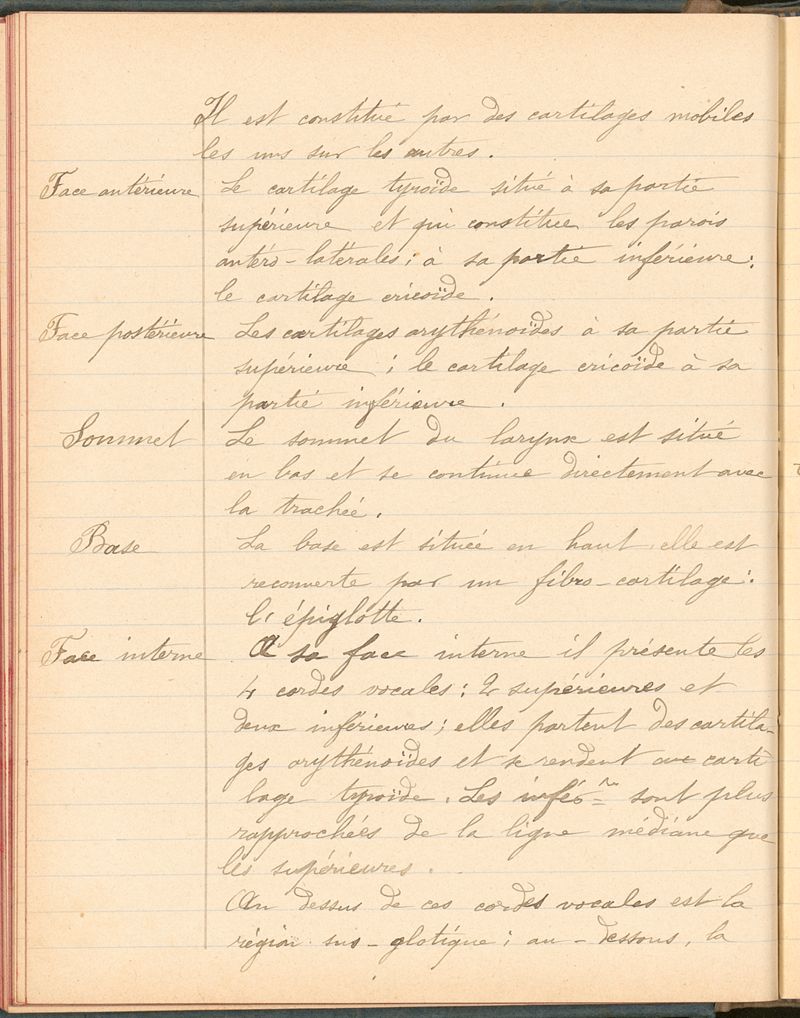 Il est constitué par des cartilages mobiles
les uns sur les autres.
Face antérieure Le cartilage tyroïde situé à sa partie
supérieure et qui constitue les parois
antéro-latérales; à sa partie inférieure:
le cartilage cricoïde.
Face postérieure Les cartilages arythénoïdes à sa partie
supérieure; le cartilage cricoïde à sa
partie inférieure.
Sommet Le sommet du larynx est situé
en bas et se continue directement avec
la trachée.
Base La base est située en haut, elle est
recouverte par un fibro-cartilage:
l'épiglotte.
Face interne A sa face interne il présente les
4 cordes vocales: 2 supérieures et
deux inférieures; elles partent des cartila-
ges arythénoïdes et se rendent au carti
lage tyroïde. Les infér res sont plus
rapprochées de la ligne médiane que
les supérieures.
Au dessus de ces cordes vocales est la
région sus-glotique; au-dessous, la